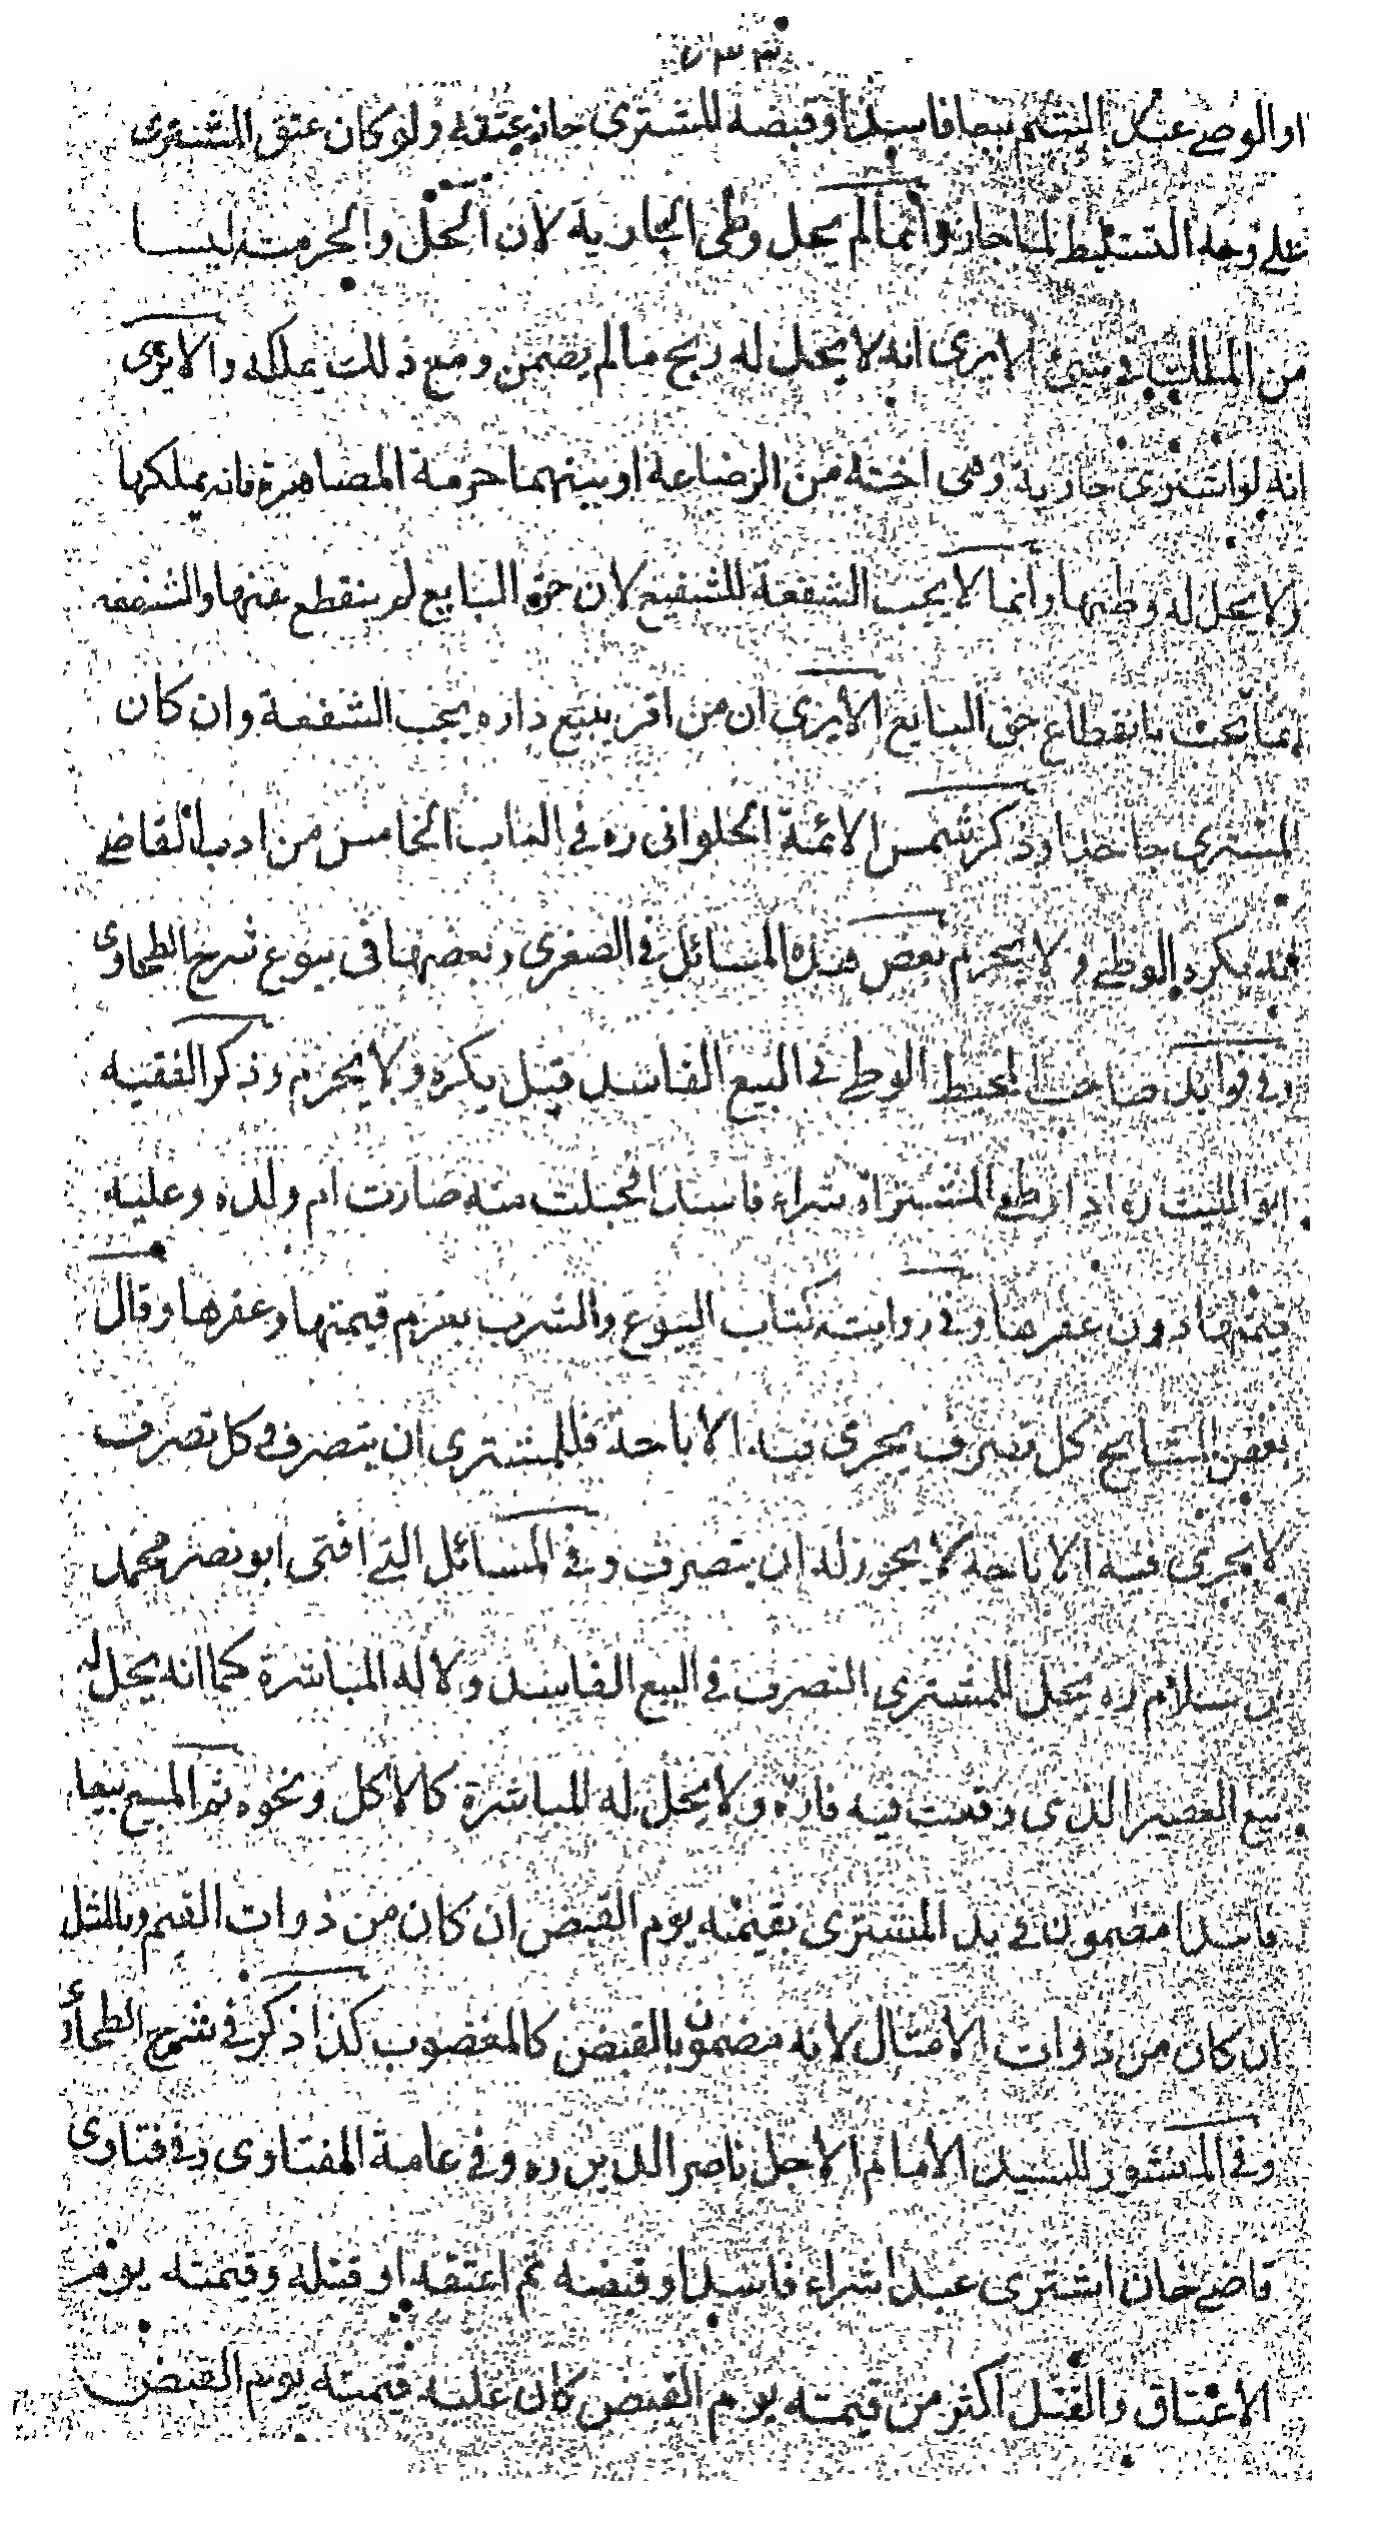 او الوصي عبد اليتيم بيعا فاسدا وقبضه المشتري جاز عتقه ولو كان عتق المشتري
على وجه التسليط لما جاز وانما لم يحل وطى الجارية لان الحل والحرمت ليسا
من الملك في شئ الا يرى انه لا يحل له ربح مالم يضمن ومع ذلك يملكه والا يرى
انه لو اشترى جارية وهى اخته من الرضاعة او بينهما حرمة المصاهرة فانه يملكها
ولا يحل له وطيها وانما لا يجب الشفعة للشفيع لان حق البايع لم ينقطع عنها والشفعة
انما يجب بانقطاع حق البايع الا يرى ان من اقر ببيع داره يجب الشفعة وان كان
المشتري جاحدا وذكر شمس الائمة الحلوانى ره في الباب الخامس من ادب القاضي
انه يكره الوطي ولا يحرم بعض هذه المسائل في الصغرى وبعضها فى بيوع شرح الطحاوى
وفي فوائد صاحب المحيط الوطي في البيع الفاسد قيل يكره ولا يحرم وذكر الفقيه
ابو الليث ره اذا وطي المشتراة شراء فاسدا فحبلت منه صارت ام ولده وعليه
قيمتها دون عقرها وفي رواية كتاب البيوع والشرب يغرم قيمتها وعقرها وقال
بعض المشايخ كل تصرف يجرى فيه الاباحة فللمشترى ان يتصرف وكل تصرف
لا يجرى فيه الاباحة لا يجوز له ان يتصرف وفي المسائل التي افتى ابو نصر محمد
بن سلام ره يحل للمشترى التصرف في البيع الفاسد ولا له المباشرة كما انه يحل له
بيع العصير الذى وقعت فيه فارة ولا يحل له المباشرة كالاكل ونحوه ثم المبيع بيعا
فاسدا مضمون في يد المشترى بقيمته يوم القبض ان كان من ذوات القيم وبالمثل
ان كان من ذوات الامثال لانه مضمون بالقبض كالمغصوب كذا ذكر في شرح الطحاوى
وفي المنثور للسيد الامام الاجل ناصر الدين ره وفي عامة الفتاوى وفي فتاوى
قاضي خان اشترى عبدا شراء فاسدا وقبضه ثم اعتقه او قتله وقيمته يوم
الاعتاق والقتل اكثر من قيمته يوم القبض كان عليه قيمته يوم القبض